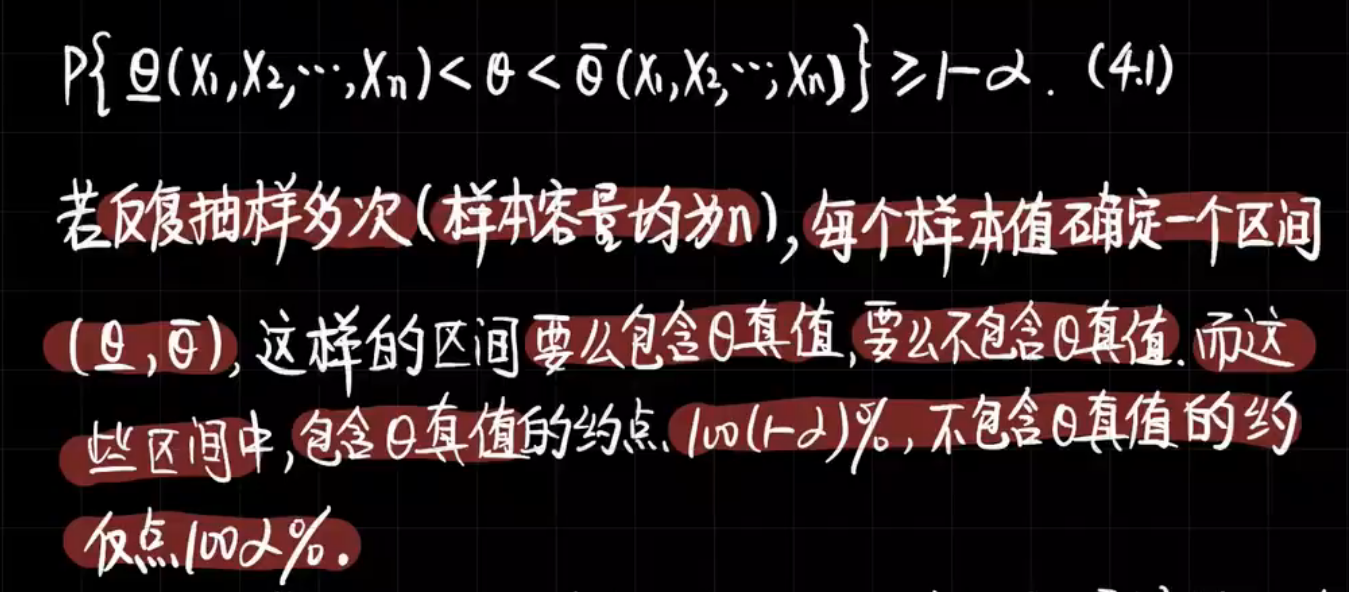 P{ θ̲(X₁,X₂,⋯,Xₙ)< θ < θ̄(X₁,X₂,⋯,Xₙ)} ≥ 1-α. (4.1)
若反复抽样多次(样本容量均为n),每个样本值确定一个区间
(θ̲,θ̄),这样的区间要么包含θ真值,要么不包含θ真值.而这
些区间中,包含θ真值的约点 100(1-α)%,不包含θ真值的约
仅点100α%.